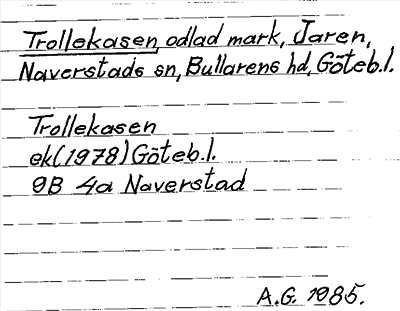 Trollekasen, odlad mark, Jaren,
Naverstads sn, Bullarens hd, Göteb.l.
Trollekasen
ek(1978)Göteb.l.
9B 4a Naverstad
A.G. 1985.